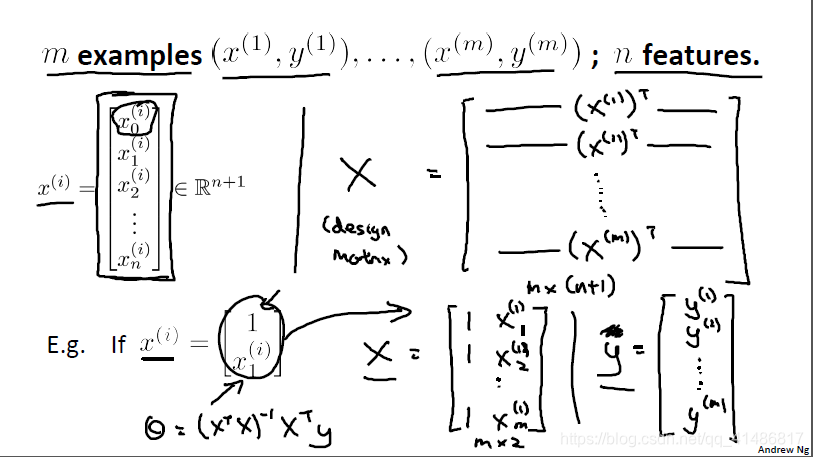 m examples (x^(1), y^(1)), …, (x^(m), y^(m)) ; n features.
x^(i) = [x_0^(i) x_1^(i) x_2^(i) ⋮ x_n^(i)] ∈ ℝ^(n+1)
X
(design
matrix)
= [— (x^(1))^T —
— (x^(2))^T —
⋮
— (x^(m))^T —]
m x (n+1)
E.g. If x^(i) = [1 x_1^(i)]
X = [1 x_1^(1)
1 x_2^(1)
⋮
1 x_m^(1)]
m x 2
y = [y^(1)
y^(2)
⋮
y^(m)]
θ = (X^T X)^-1 X^T y
https://blog.csdn.net/qq_41486817
Andrew Ng